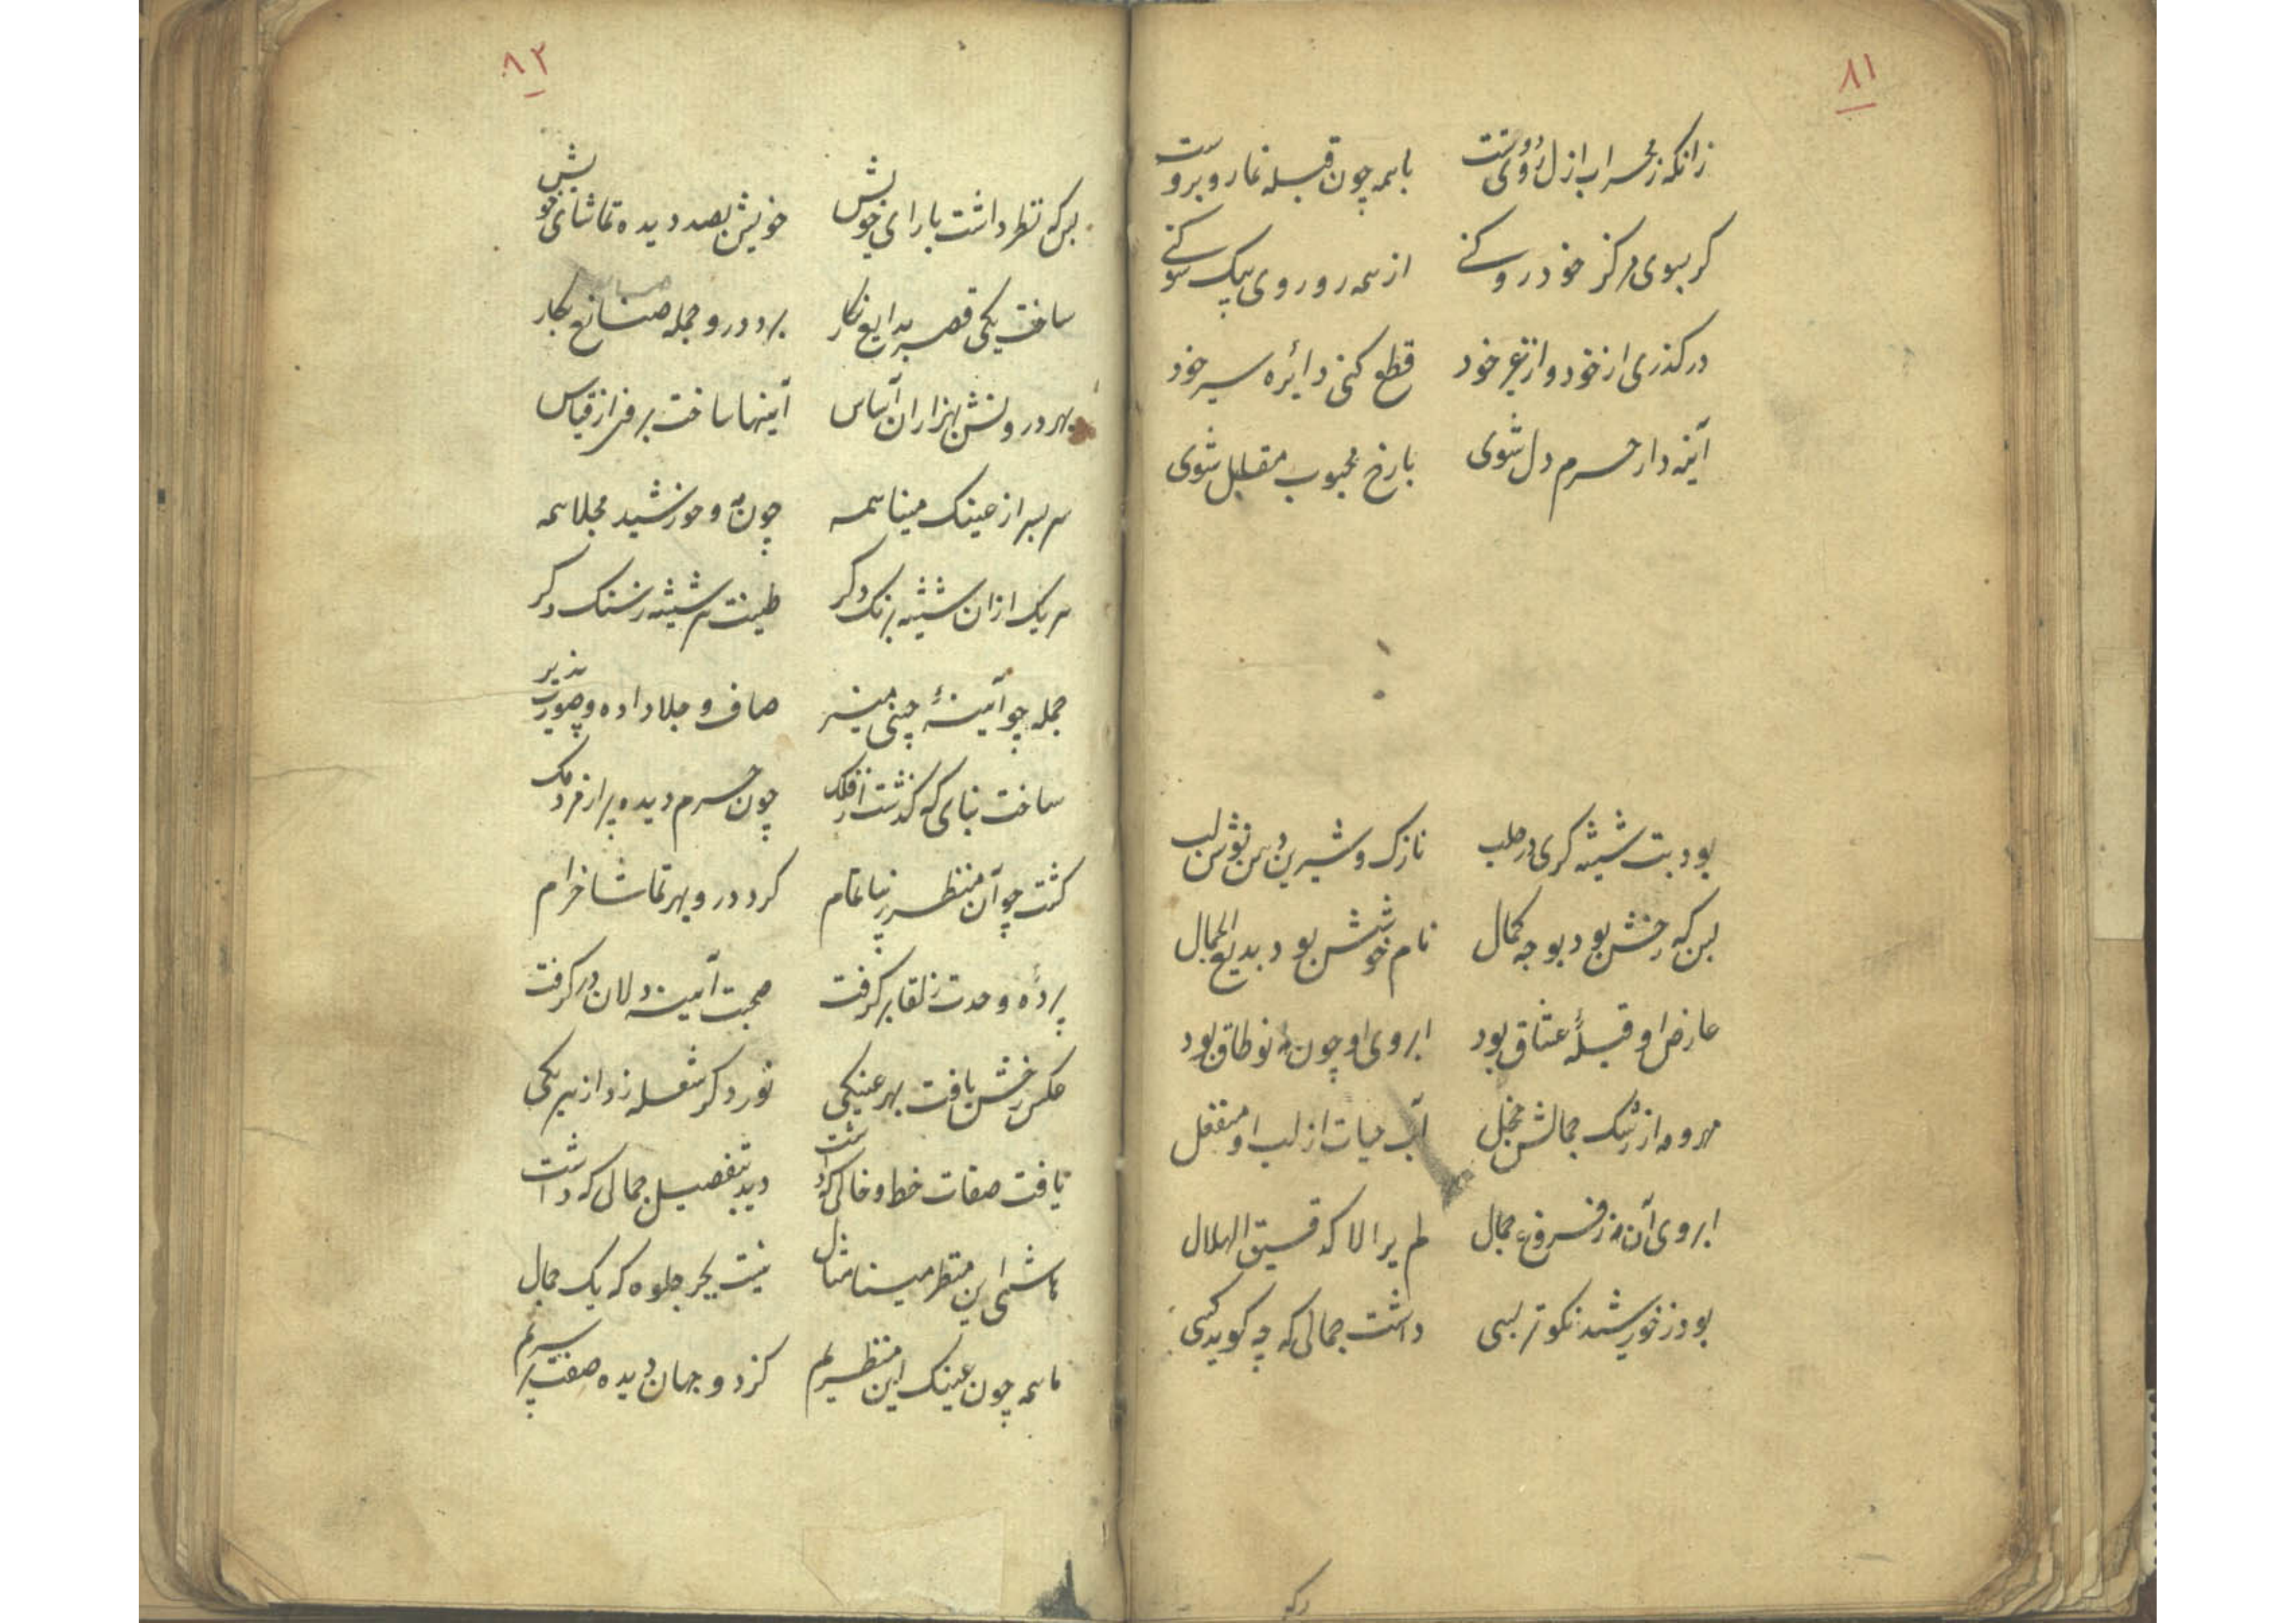 ۸۱
زانکه ز محراب ازل روی تست باهمه چون قبله نما روبروست
کر بسوی مرکز خود رو کنے از همه رو روی بیک سو کنے
درکذری از خود و از غیر خود قطع کنی دائره سیر خود
آینه دار حرم دل شوی بارخ محبوب مقابل شوی
بود بت شیشه کری در حلب نازک و شیرین دهن نوش لب
بس که رخش بود بوجه کمال نام خوشش بود بدیع الجمال
عارض او قبلهٔ عشاق بود ابروی او چون مه نو طاق بود
مهر و مه از رشک جمالش خجل آب حیات از لب او منفعل
ابروی آن مه ز فروغ جمال لم یر الا کدقیق الهلال
بود ز خورشید نکوتر بسی داشت جمالی که چه کوید کسی
۸۲
بس که نظر داشت بارای خویش خویش بصد دیده تماشای خویش
ساخت یکی قصر بدایع نکار برد درو جمله صنایع بکار
بهر درونش بهزاران اساس آینها ساخت برفزاز قیاس
سر بسر از عینک مینا همه چون مه و خورشید مجلا همه
هر یک ازان شیشه برنک دکر طینت هر شیشه ز سنک دکر
جمله چو آینهٔ چینی منیر صاف و جلا داده و صورت پذیر
ساخت بنای که کذشت از فلک چون حرم دیده پر از مردمک
کشت چو آن منظر زیبا تمام کرد درو بهر تماشا خرام
پردهٔ وحدت ز لقا بر کرفت صحبت آینه دلان در کرفت
عکس رخش یافت بهر عینکی نور دکر شعله زد از هر یکی
یافت صفات خط و خالی که داشت دید بتفصیل جمالی که داشت
هاشمی این منظر مینا مثال نیست بجز جلوه که یک جمال
ما همه چون عینک این منظریم کزد و جهان دیده صفت بر سریم